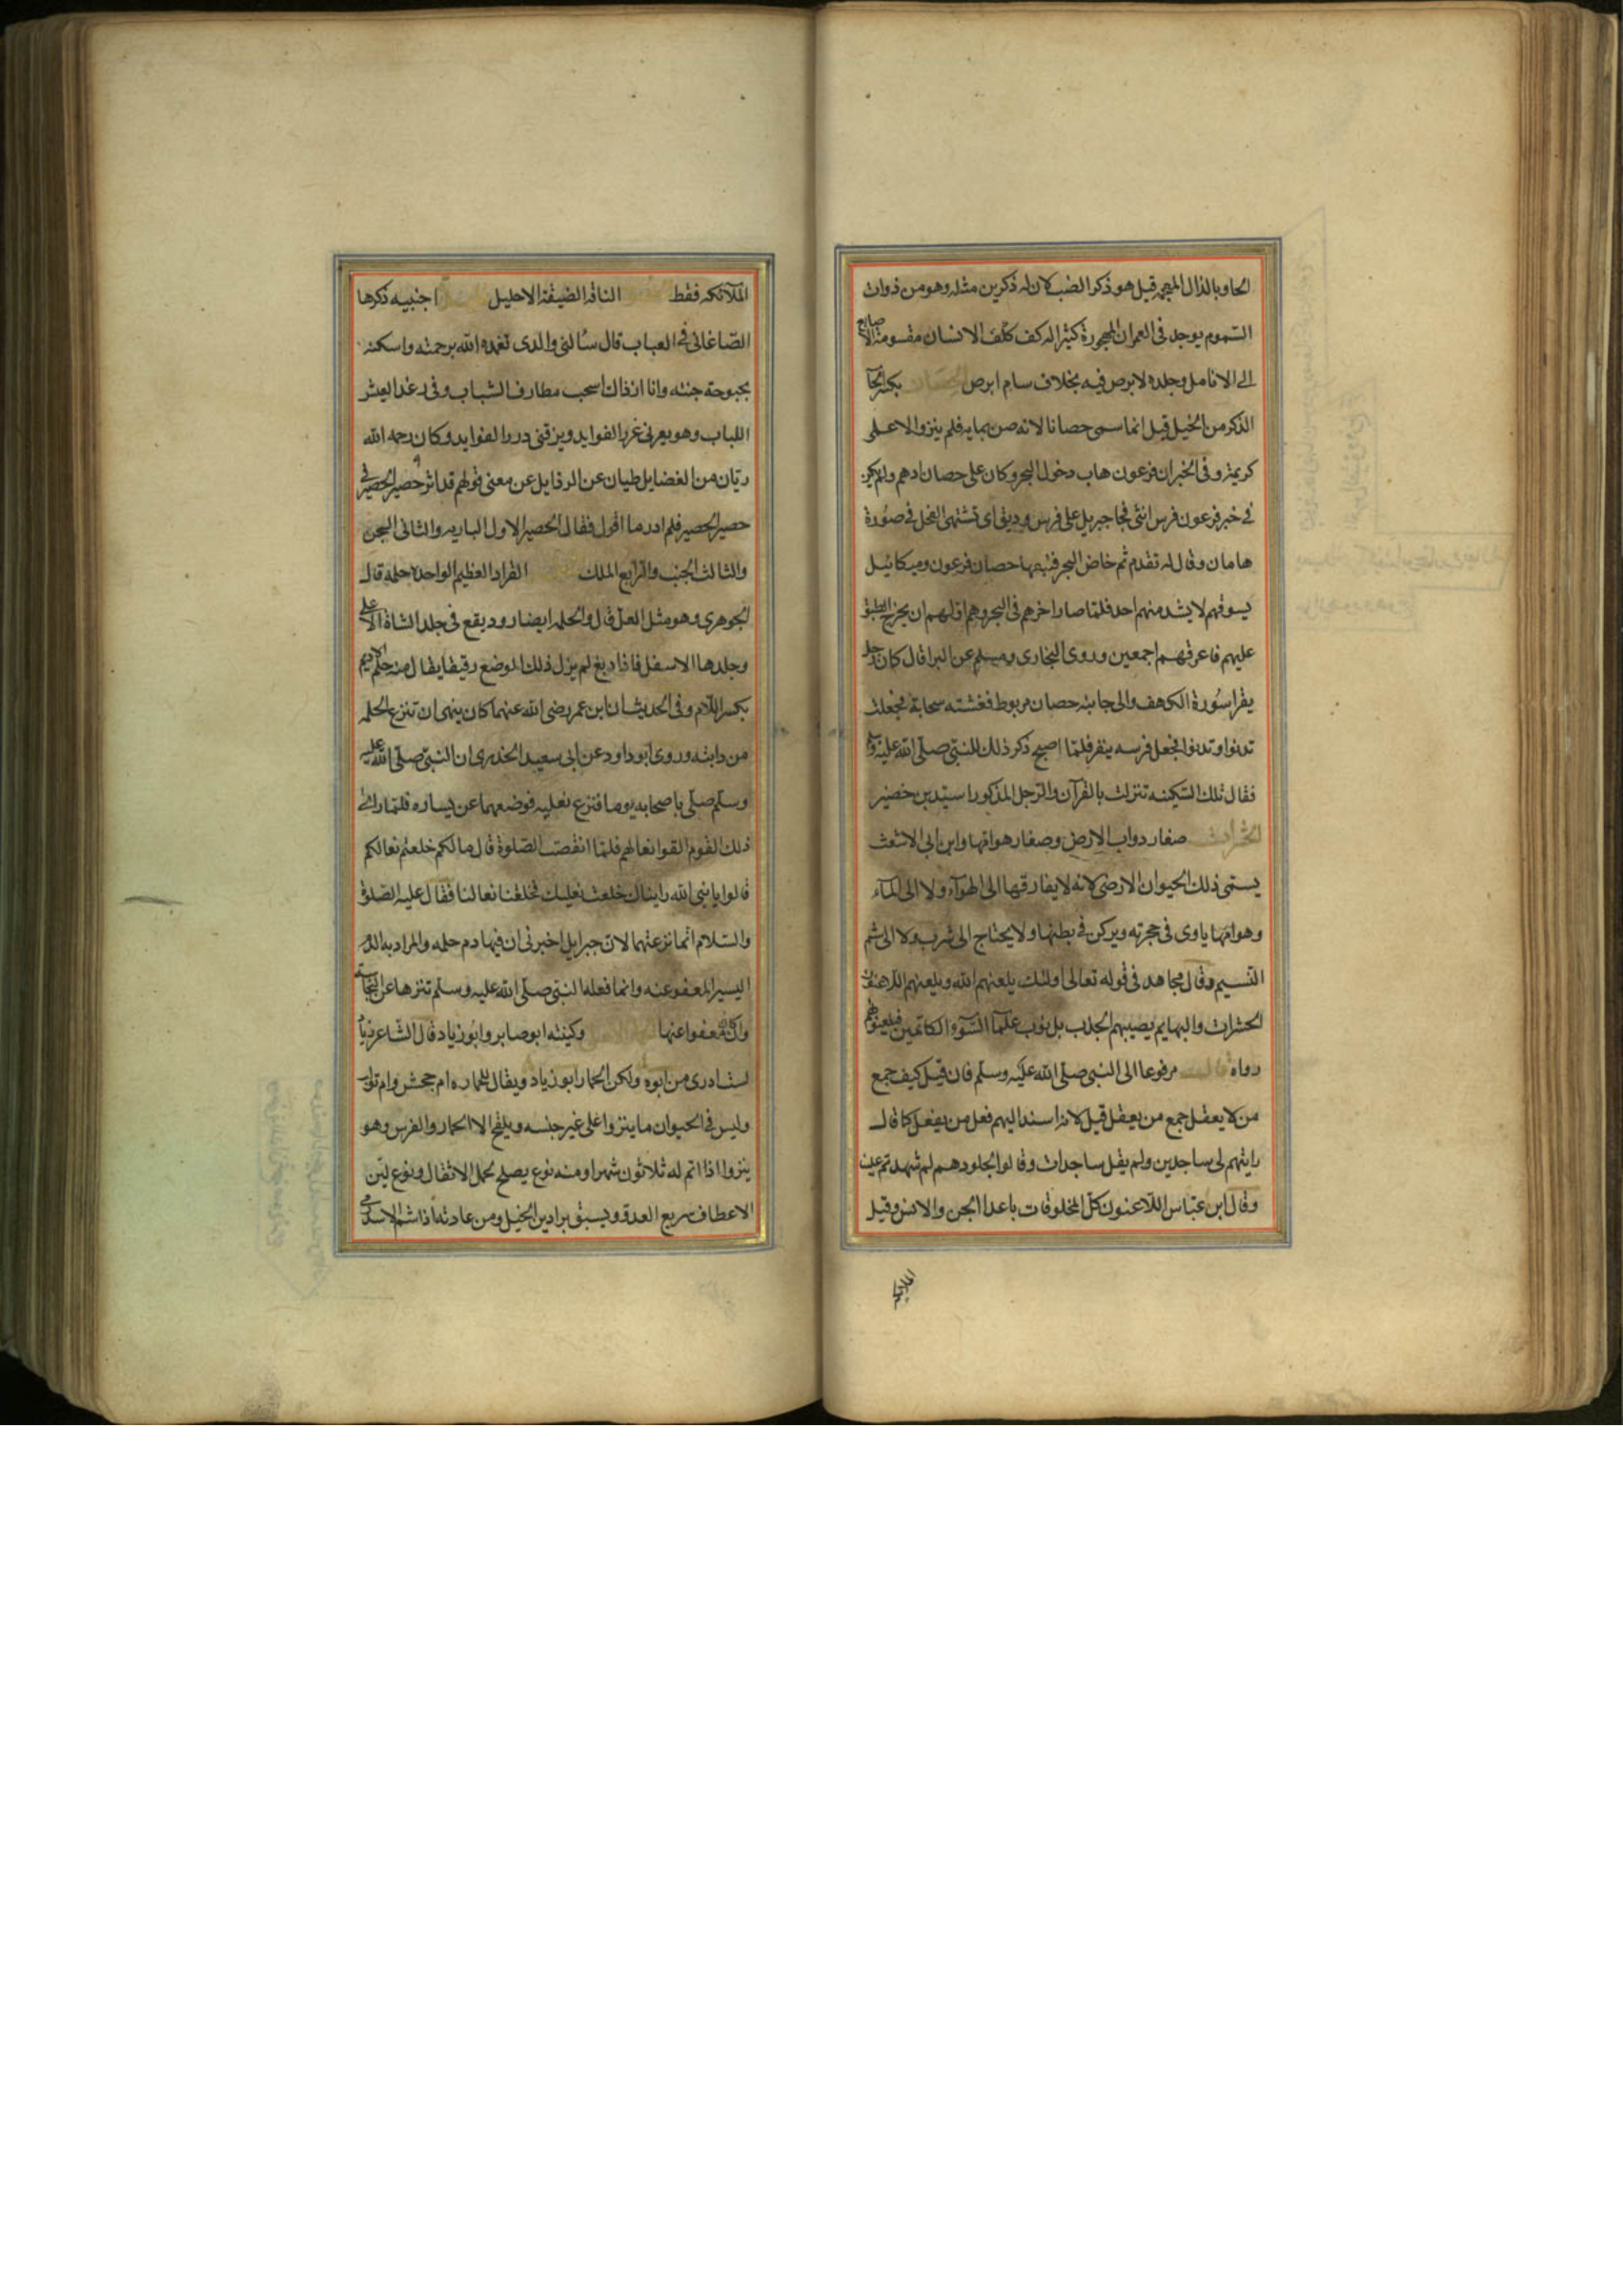 الحاو بالذال المعجمة قيل هو ذكر الضب لان له ذكرين مثله وهو من ذوات
السموم يوجد في العمران المهجورة كثيرا له كف ككف الانسان مقسومة الاصابع
الى الانامل وجلده لا برص فيه بخلاف سام ابرص الحصان بكسر الحا
الذكر من الخيل قيل انما سمى حصانا لانه صن بمايه فلم ينزو الا على
كريمة وفى الخبر ان فرعون هاب دخول البحر وكان على حصان ادهم ولم يكن
في خبر فرعون فرس انثى فجا جبريل على فرس وديق اى تشتهى الفحل في صورة
هامان وقال له تقدم ثم خاض البحر فتبعها حصان فرعون وميكائيل
يسوقهم لا يشد منهم احد فلما صار اخرهم في البحر وهم اولهم ان يخرج انطبق
عليهم فاغرقهم اجمعين وروى البخارى ومسلم عن البرا قال كان رجل
يقرا سورة الكهف والى جانبه حصان مربوط فغشته سحابة فجعلت
تدنوا وتدنوا فجعل فرسه ينفر فلما اصبح ذكر ذلك للنبى صلى الله عليه وسلم
فقال تلك السكينه تنزلت بالقرآن والرجل المذكور اسيد بن حضير
الحشرات صغار دواب الارض وصغار هوامها وابن ابى الاشعث
يسمى ذلك الحيوان الارضى لانه لا يفارقها الى الهوآء ولا الى المآء
وهوامها ياوى في حجرته ويركن في بطنها ولا يحتاج الى شرب ولا الى شم
النسيم وقال مجاهد في قوله تعالى اولئك يلعنهم الله ويلعنهم اللاعنون
الحشرات والبهايم يصيبهم الجدب بذنوب علمآ السوء الكاتمين فيلعنونهم
رواه مرفوعا الى النبى صلى الله عليه وسلم فان قيل كيف جمع
من لا يعقل جمع من يعقل قيل لانه اسند اليهم فعل من يعقل كما قال
رايتهم لى ساجدين ولم يقل ساجدات وقالوا لجلودهم لم شهدتم علينا
وقال ابن عباس اللاعنون كل المخلوقات ما عدا الجن والانس وقيل
الملائكه
الملائكه فقط الناقة الضيقة الاحليل اجنبيه ذكرها
الصاغانى في العباب قال سالنى والدى تغمده الله برحمته واسكنه
بحبوحة جنته وانا اذ ذاك اسحب مطارف الشباب وفى رغد العيش
اللباب وهو يعرنى غرر الفوايد ويزقنى درر الفوايد وكان رحمه الله
ريان من الفضايل طيان عن الرذايل عن معنى قولهم قد اثر حصير الحصير في
حصير الحصير فلم ادر ما اقول فقال الحصير الاول الباريه والثانى السجن
والثالث الجنب والرابع الملك القراد العظيم الواحده حلمة قال
الجوهرى وهو مثل العل قال والحلم ايضا دود يقع في جلد الشاة الاعلى
وجلدها الاسفل فاذا دبغ لم يزل ذلك الموضع رقيقا يقال منه حلم الاديم
بكسر اللام وفى الحديث ان ابن عمر رضى الله عنهما كان ينهى ان تنزع الحلمه
من دابته وروى ابو داود عن ابى سعيد الخدرى ان النبى صلى الله عليه
وسلم صلى باصحابه يوما فنزع نعليه فوضعهما عن يساره فلما راى
ذلك القوم القوا نعالهم فلما انقضت الصلوة قال ما لكم خلعتم نعالكم
قالوا يا نبى الله رايناك خلعت نعليك فخلعنا نعالنا فقال عليه الصلوة
والسلام انما نزعتهما لان جبرايل اخبرنى ان فيها دم حلمه والمراد به الدم
اليسير المعفو عنه وانما فعله النبى صلى الله عليه وسلم تنزها عن النجاسة
وان كان معفوا عنها وكنيته ابو صابر وابو زياد قال الشاعر زياد
لست ادرى من ابوه ولكن الحمار ابو زياد ويقال للحماره ام جحش وام تولب
وليس في الحيوان ما ينزوا على غير جنسه ويلقح الا الحمار والفرس وهو
ينزوا اذا اتم له ثلاثون شهرا ومنه نوع يصلح لحمل الاثقال ونوع لين
الاعطاف سريع العدو ويسبق براذين الخيل ومن عادته اذا شم الاسد رمى